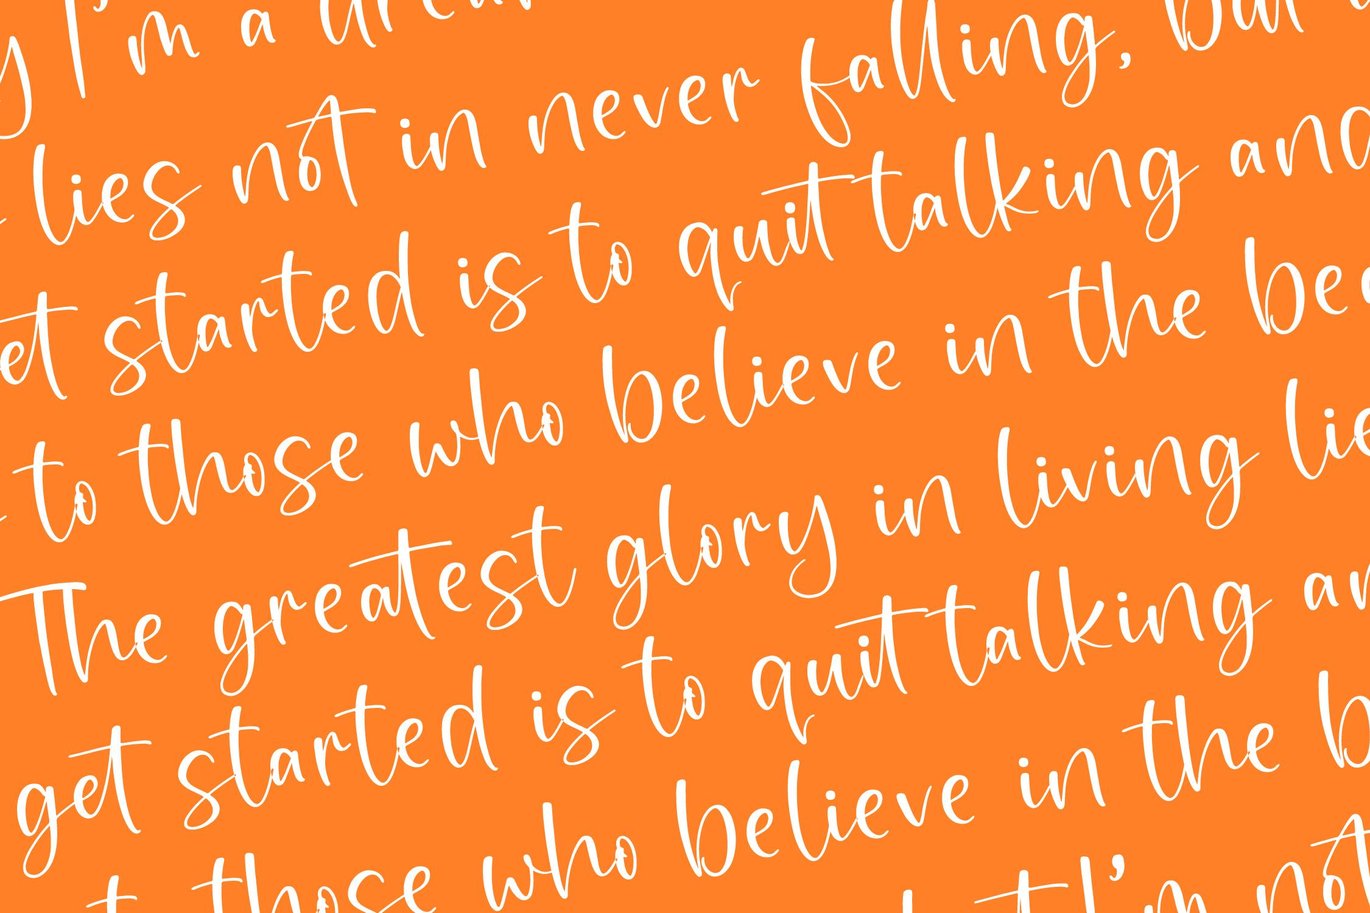 I'm a
lies not in never falling, but
et started is to quit talking and
to those who believe in the
The greatest glory in living
get started is to quit talking
to those who believe in the
I'm not